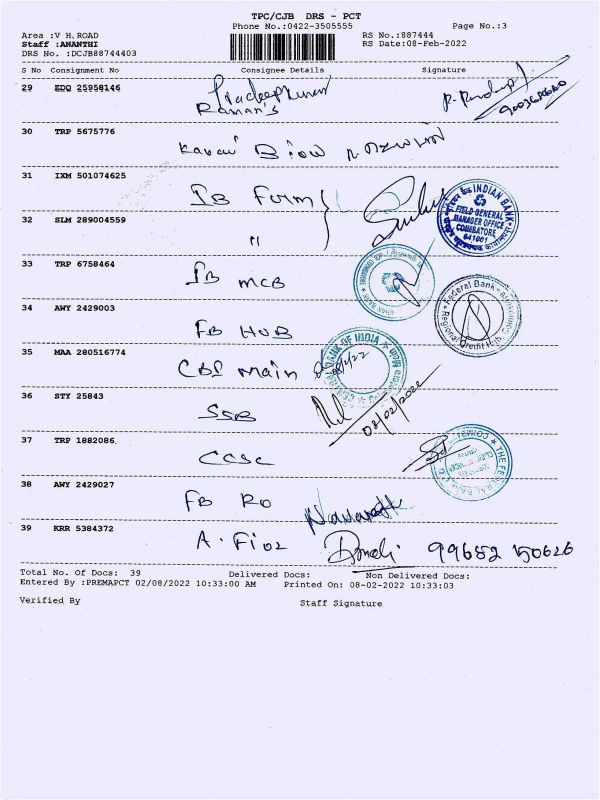 TPC/CJB DRS - PCT
Phone No.:0422-3505555
Page No.:3
Area :V H.ROAD
RS No.:887444
Staff :ANANTHI
RS Date:08-Feb-2022
DRS No. :DCJB88744403
S No Consignment No Consignee Details Signature
29 EDQ 25958146
Pradeepkumar
Raman's
30 TRP 5675776
31 IXM 501074625
IB Form
INDIAN BANK
FIELD GENERAL
MANAGER OFFICE
COIMBATORE
641001
32 SLM 289004559
"
33 TRP 6758464
IB MCB
34 AWY 2429003
FB HUB
Federal Bank
Regional Credit Hub
35 MAA 280516774
CBI main
CENTRAL BANK OF INDIA
36 STY 25843
SSB
08/02/2022
37 TRP 1882086
CCSC
THE FEDERAL BANK
38 AWY 2429027
FB RO
39 KRR 5384372
99652 50626
Total No. Of Docs: 39 Delivered Docs: Non Delivered Docs:
Entered By :PREMAPCT 02/08/2022 10:33:00 AM Printed On: 08-02-2022 10:33:03
Verified By Staff Signature